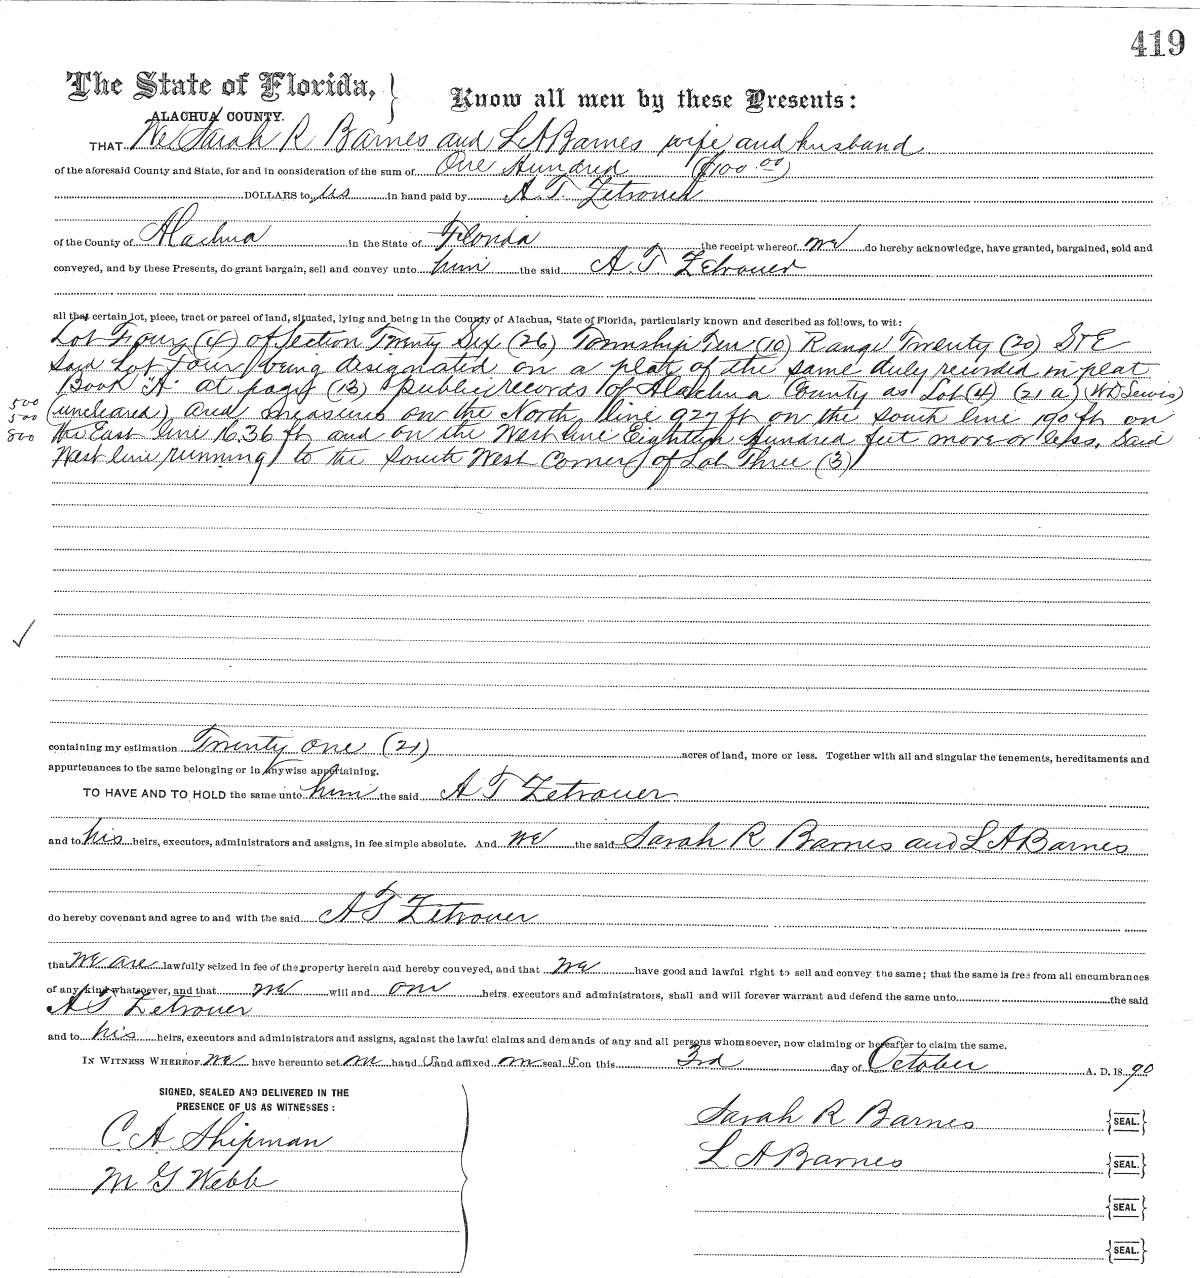 419
The State of Florida, }
ALACHUA COUNTY.
Know all men by these Presents:
THAT We Sarah R Barnes and L A Barnes wife and husband
of the aforesaid County and State, for and in consideration of the sum of One Hundred ($100.00)
DOLLARS to us in hand paid by A. T. Zetrouer
of the County of Alachua in the State of Florida the receipt whereof we do hereby acknowledge, have granted, bargained, sold and
conveyed, and by these Presents, do grant bargain, sell and convey unto him the said A T Zetrouer
all that certain lot, piece, tract or parcel of land, situated, lying and being in the County of Alachua, State of Florida, particularly known and described as follows, to wit:
Lot Four (4) of Section Twenty Six (26) Township Ten (10) Range Twenty (20) S & E
Said Lot Four being designated on a plat of the same duly recorded in plat
Book "A" at page (13) public records of Alachua County as Lot (4) (21 a) (WD Lewis)
500
(uncleared) and measures on the North line 927 ft on the South line 190 ft on
500
the East line 1636 ft and on the West line Eighteen Hundred feet more or less, Said
800
West line running to the South West Corner of Lot Three (3)
✓
containing my estimation Twenty one (21) acres of land, more or less. Together with all and singular the tenements, hereditaments and
appurtenances to the same belonging or in anywise appertaining.
TO HAVE AND TO HOLD the same unto him the said A T Zetrouer
and to his heirs, executors, administrators and assigns, in fee simple absolute. And we the said Sarah R Barnes and L A Barnes
do hereby covenant and agree to and with the said A T Zetrouer
that we are lawfully seized in fee of the property herein and hereby conveyed, and that we have good and lawful right to sell and convey the same; that the same is free from all encumbrances
of any kind whatsoever, and that we will and our heirs executors and administrators, shall and will forever warrant and defend the same unto the said
A T Zetrouer
and to his heirs, executors and administrators and assigns, against the lawful claims and demands of any and all persons whomsoever, now claiming or hereafter to claim the same.
IN WITNESS WHEREOF we have hereunto set our hand s and affixed our seal s on this 3rd day of October A. D. 1890
SIGNED, SEALED AND DELIVERED IN THE
PRESENCE OF US AS WITNESSES:
C A Shipman
M G Webb
Sarah R Barnes {SEAL.}
L A Barnes {SEAL.}
{SEAL}
{SEAL.}